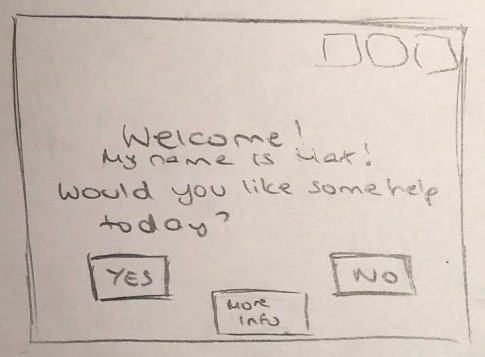 Welcome!
My name is Max!
Would you like some help
today?
YES
NO
More
info